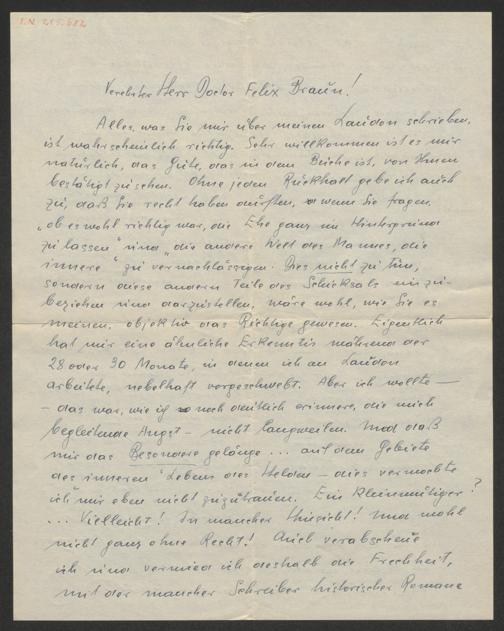 I.N. 215.682
Verehrter Herr Doctor Felix Braun!
Alles, was Sie mir über meinen Laudon schrieben,
ist wahrscheinlich richtig. Sehr willkommen ist es mir
natürlich, das Gute, das in dem Buche ist, von Ihnen
bestätigt zu sehen. Ohne jeden Rückhalt gebe ich auch
zu, daß Sie recht haben dürften, wenn Sie fragen,
„ob es wohl richtig war, die Ehe ganz im Hintergrund
zu lassen" und „die andere Welt des Mannes, die
innere" zu vernachlässigen. Dies nicht zu tun,
sondern diese andern Teile des Schicksals einzu-
beziehen und darzustellen, wäre wohl, wie Sie es
meinen, objektiv das Richtige gewesen. Eigentlich
hat mir eine ähnliche Erkenntnis während der
28 oder 30 Monate, in denen ich an Laudon
arbeitete, nebelhaft vorgeschwebt. Aber ich wollte —
— das war, wie ich noch deutlich erinnere, die mich
begleitende Angst — nicht langweilen. Und daß
mir das Besondere gelänge ... auf dem Gebiete
des inneren Lebens des Helden — dies vermochte
ich mir eben nicht zuzutrauen. Ein Kleinmütiger?
... Vielleicht! In mancher Hinsicht! Und wohl
nicht ganz ohne Recht! Auch verabscheue
ich und vermied ich deshalb die Frechheit,
mit der mancher Schreiber historischer Romane